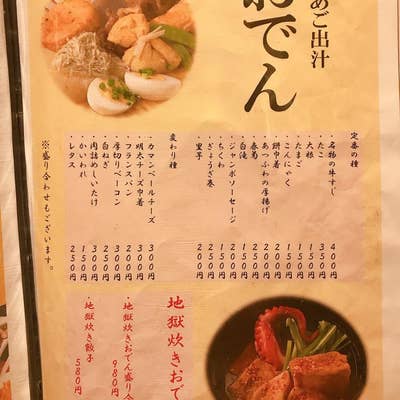 あご出汁
おでん
定番の種
・名物の牛すじ 400円
・たこ 350円
・大根 150円
・たまご 150円
・こんにゃく 150円
・餅巾着 200円
・あつふわの厚揚げ
・春菊
・ジャンボソーセージ
・白滝
・ちくわ
・ぎょうざ巻
・里芋 200円
変わり種
・カマンベールチーズ 300円
・明太チーズ巾着
・フランスパン
・厚切りベーコン 300円
・白ねぎ
・肉詰めしいたけ 300円
・かいわれ 150円
・レタス 250円
※盛り合わせもございます。
地獄炊きおで
・地獄炊きおでん盛り合 980円
・地獄炊き餃子 580円